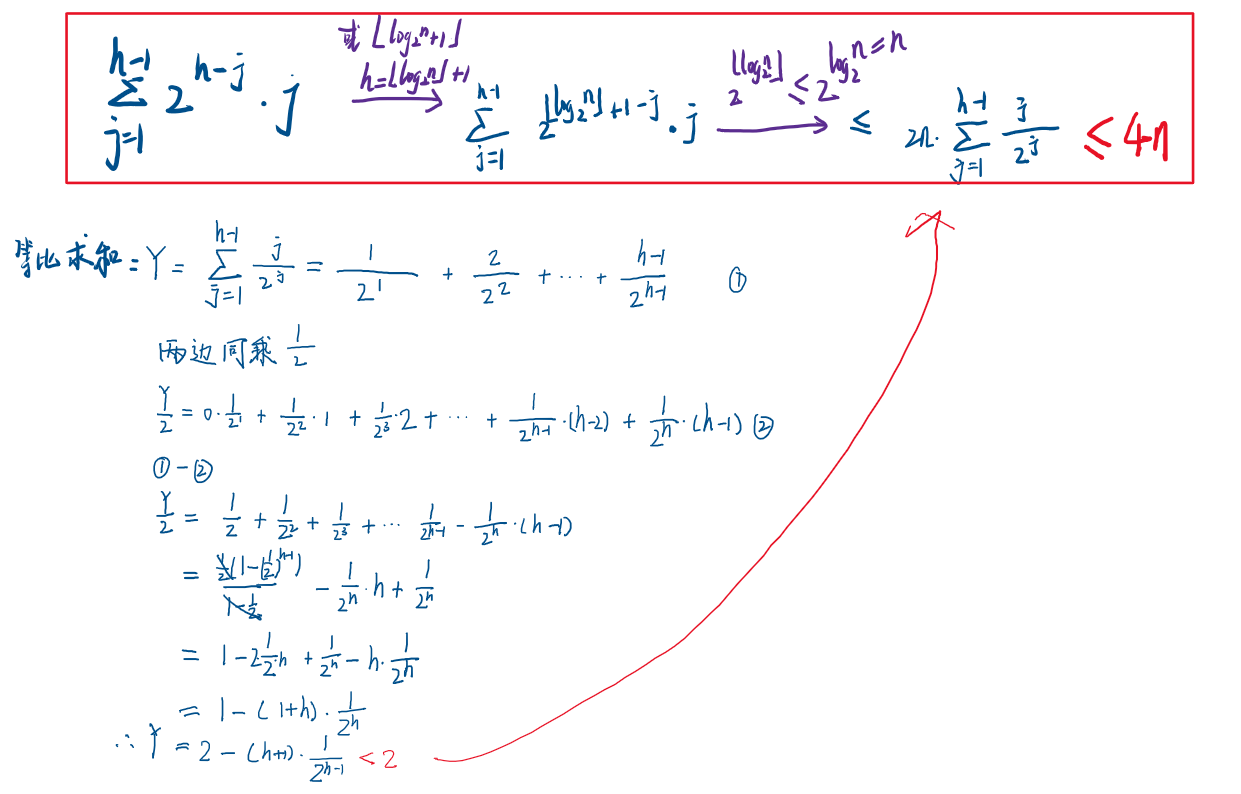 或 ⌊log₂n+1⌋
h=⌊log₂n⌋+1
2^⌊log₂n⌋ ≤ 2^log₂n = n
∑_{j=1}^{h-1} 2^{h-j} · j → ∑_{j=1}^{h-1} 2^{⌊log₂n⌋+1-j} · j → ≤ 2n · ∑_{j=1}^{h-1} j/2^j ≤ 4n
等比求和: Y = ∑_{j=1}^{h-1} j/2^j = 1/2^1 + 2/2^2 + ··· + (h-1)/2^{h-1} ①
两边同乘 1/2
Y/2 = 0·1/2^1 + 1/2^2·1 + 1/2^3·2 + ··· + 1/2^{h-1}·(h-2) + 1/2^h·(h-1) ②
①-②
Y/2 = 1/2 + 1/2^2 + 1/2^3 + ··· 1/2^{h-1} - 1/2^h·(h-1)
= 1/2(1-(1/2)^{h-1})/(1-1/2) - 1/2^h·h + 1/2^h
= 1-2·1/2^h + 1/2^h - h·1/2^h
= 1-(1+h)·1/2^h
∴ Y = 2-(h+1)·1/2^{h-1} < 2